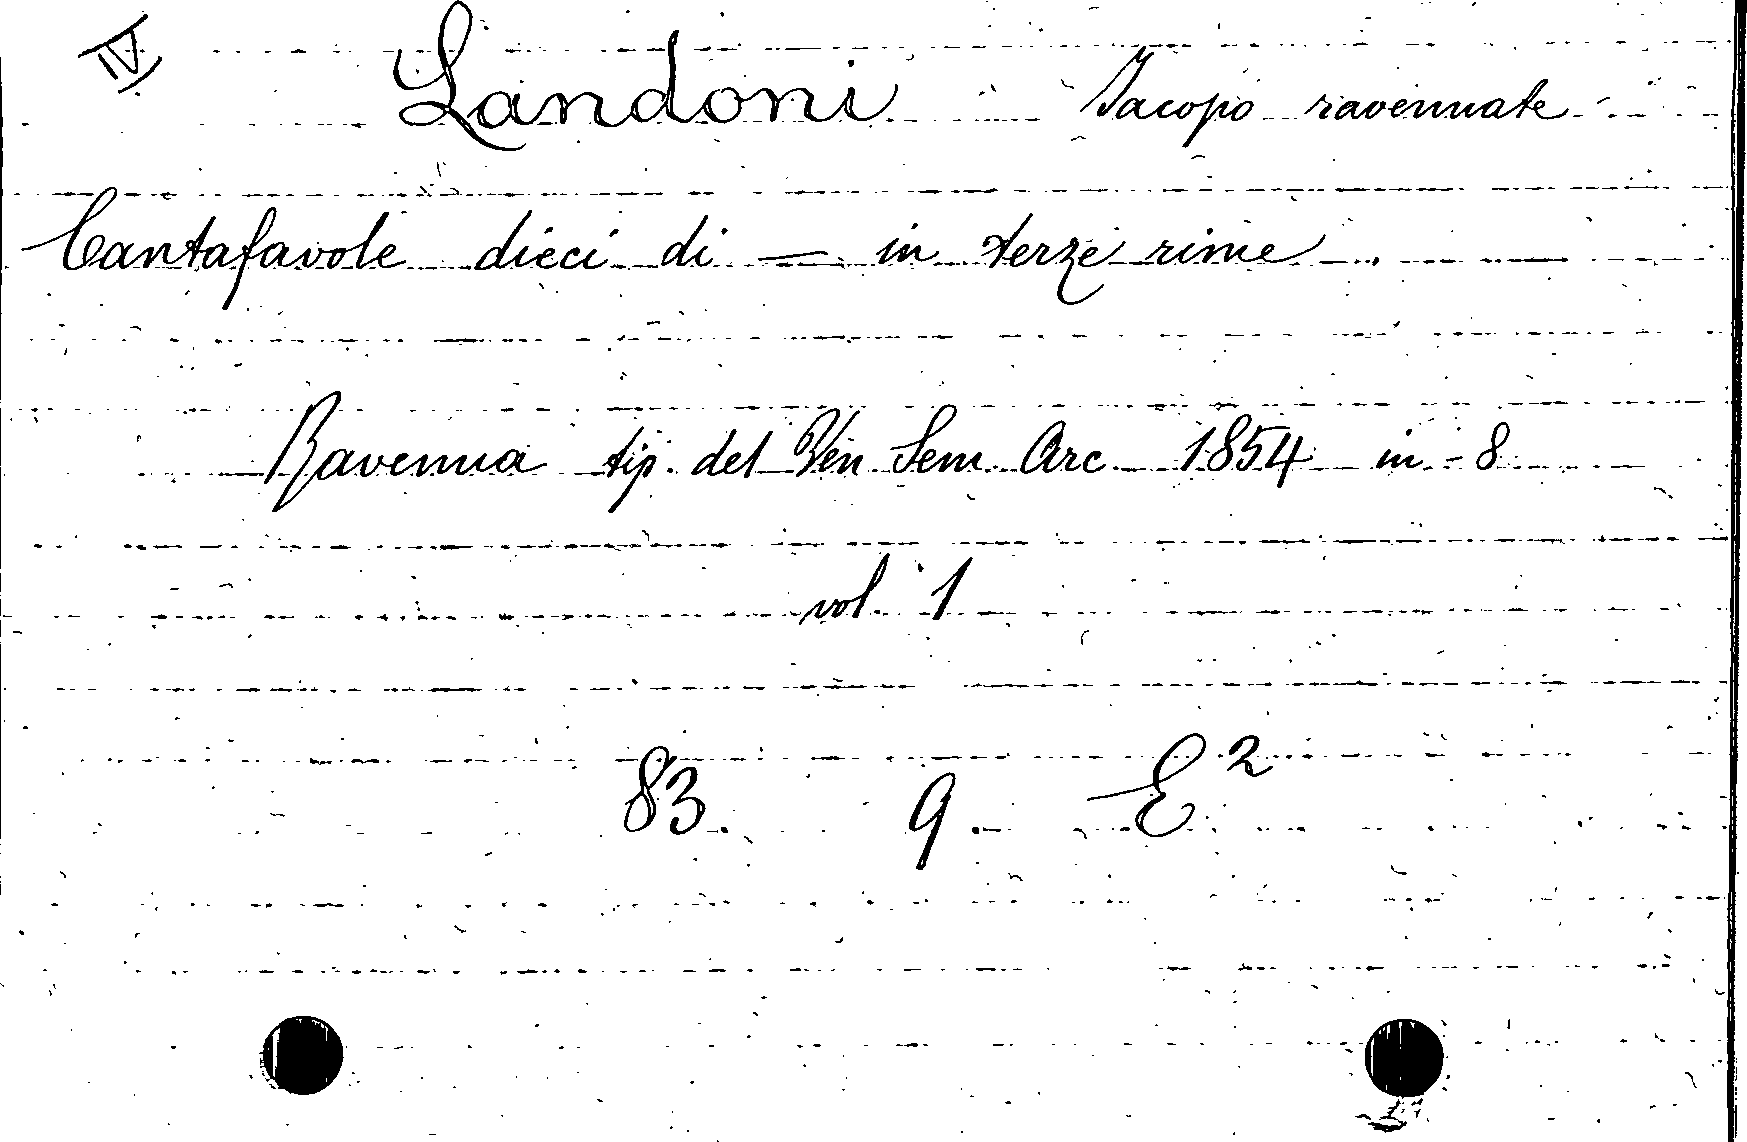 IV
Landoni Jacopo ravennate
Cantafavole dieci di — in terze rime
Ravenna tip. del Ven Sem Arc 1854 in - 8
vol 1
83. 9. E²